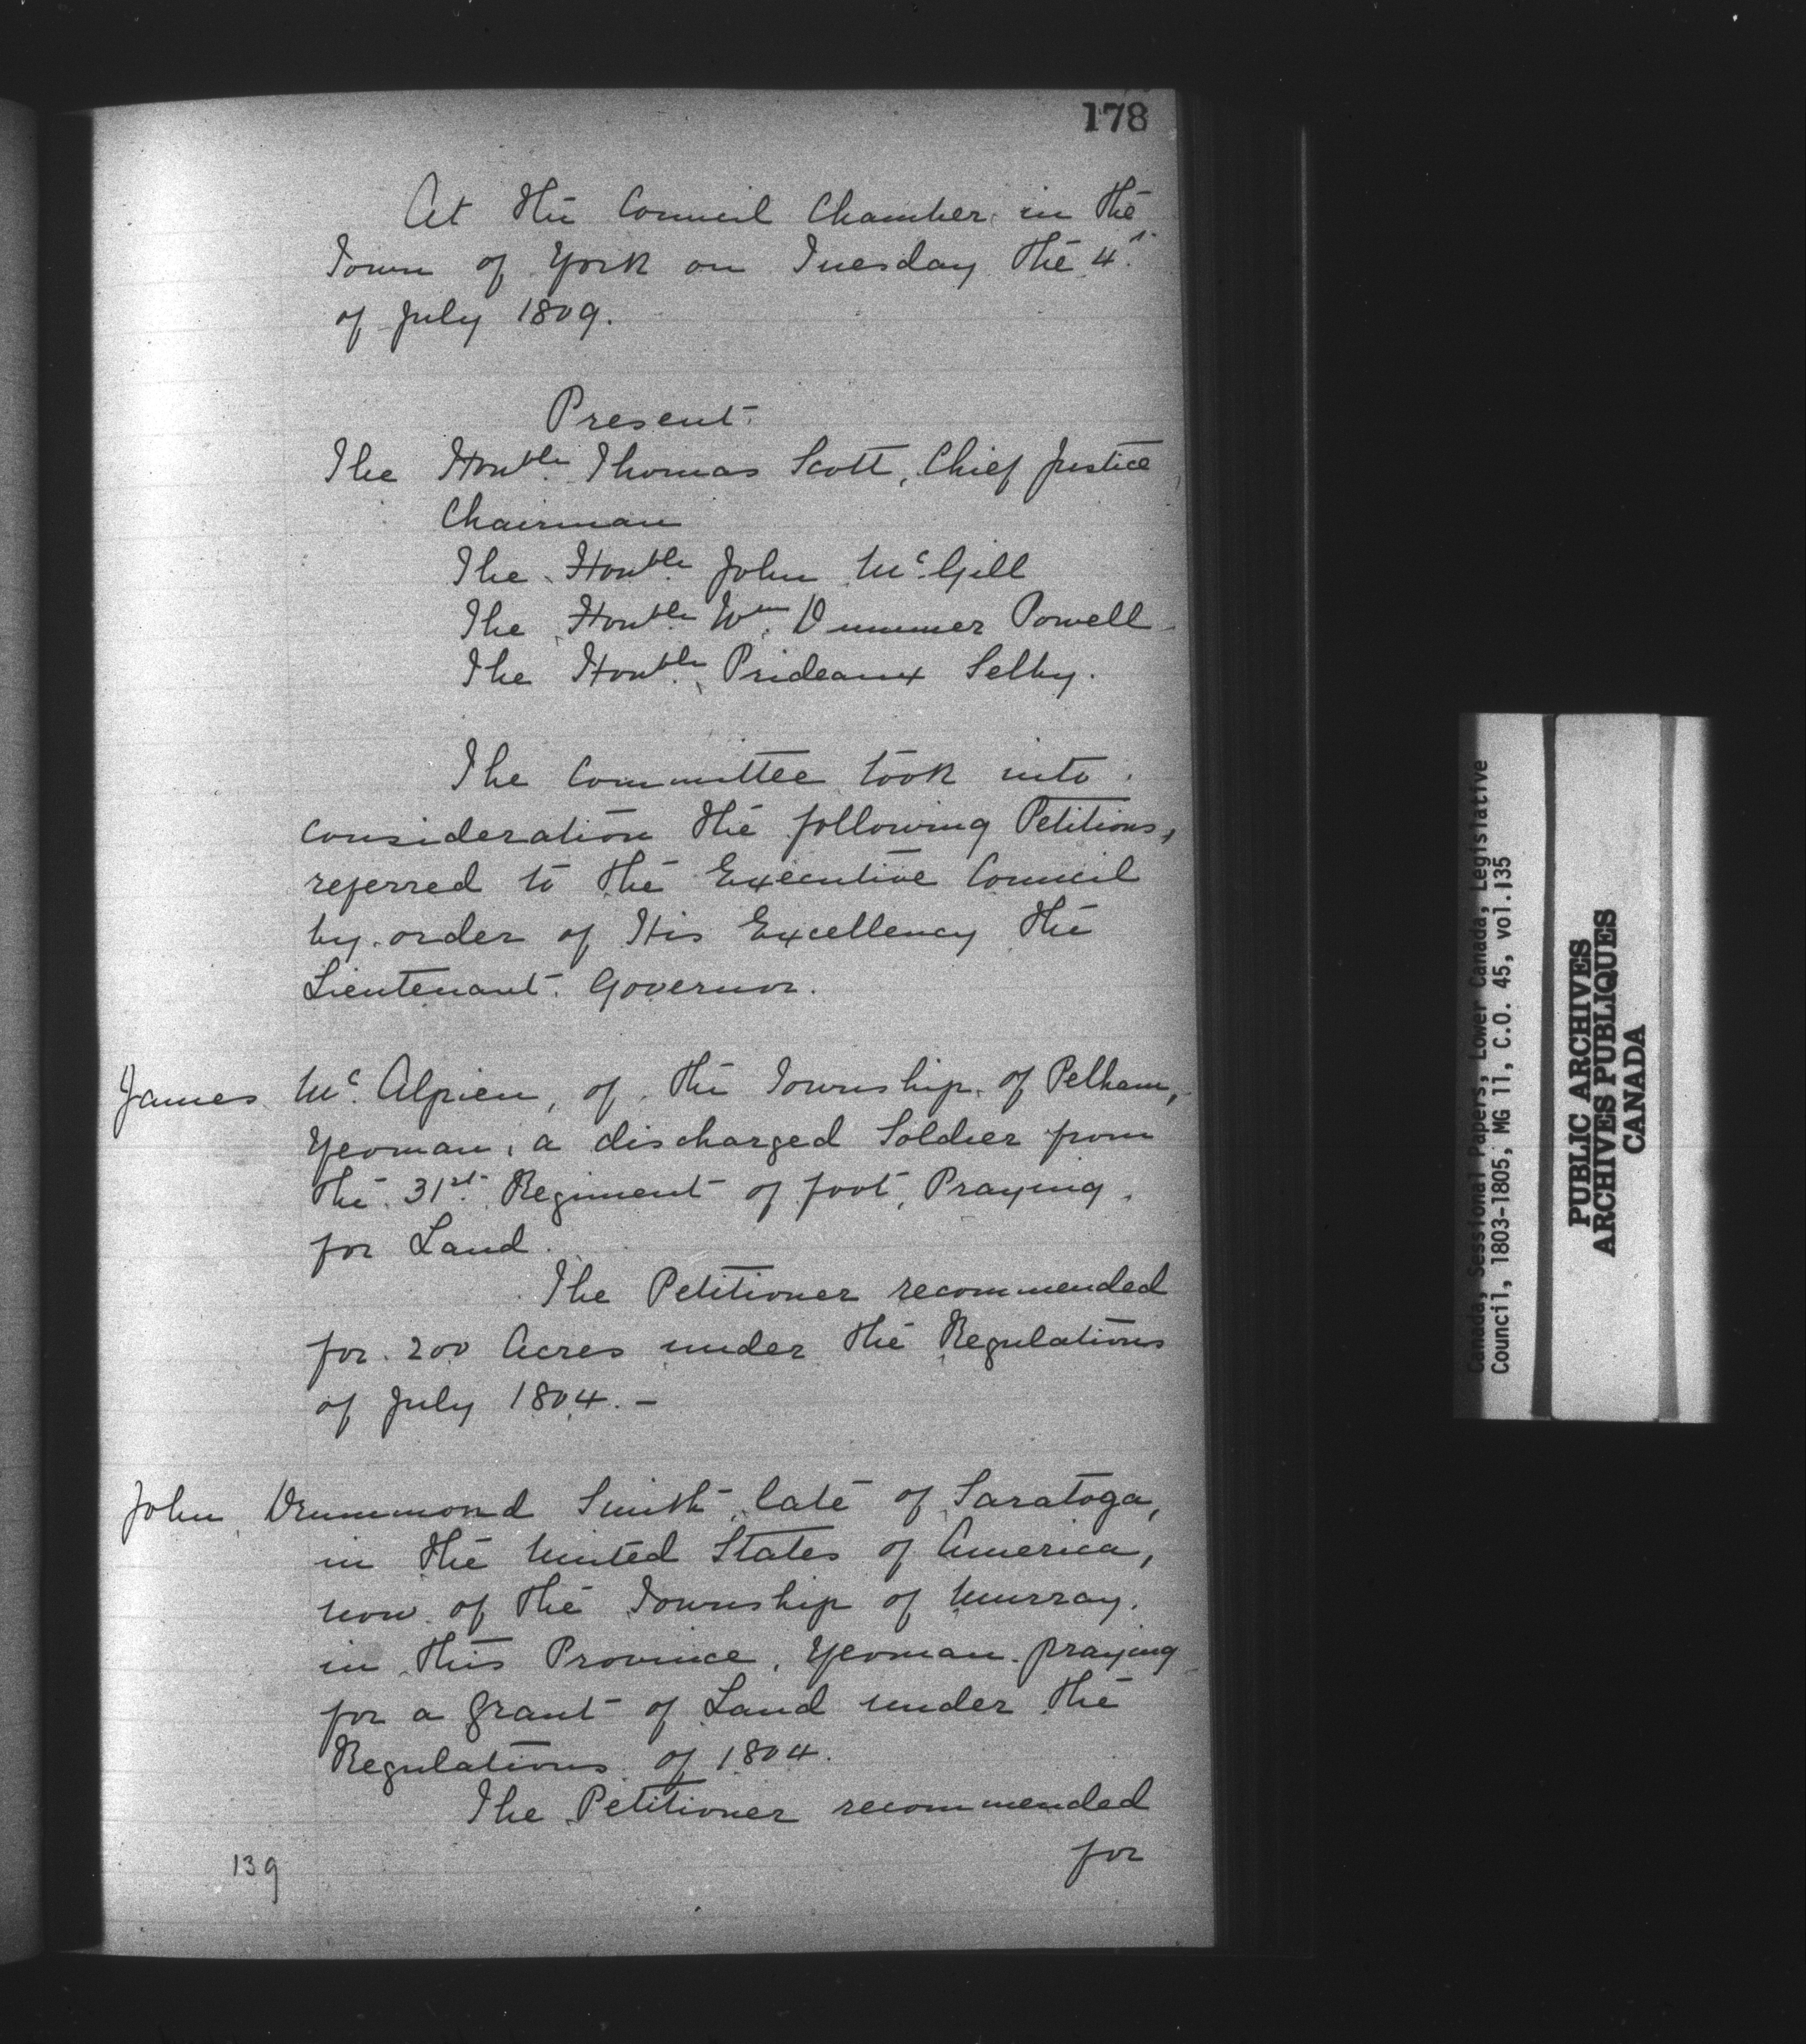 178
At the Council Chamber in the
Town of York on Tuesday the 4.
of July 1809.
Present.
The Honble. Thomas Scott, Chief Justice
Chairman
The Honble. John Mc.Gill
The Honble. Wm. Dummer Powell
The Honble. Prideaux Selby.
The Committee took into
consideration the following Petitions,
referred to the Executive Council
by order of His Excellency the
Lieutenant Governor.
James Mc. Alpien, of the Township of Pelham,
Yeoman, a discharged Soldier from
the 31st. Regiment of foot, Praying
for Land.
The Petitioner recommended
for 200 Acres under the Regulations
of July 1804. -
John Drummond Smith, late of Saratoga,
in the United States of America,
now of the Township of Murray.
in this Province, Yeoman praying
for a grant of Land under the
Regulations of 1804.
The Petitioner recommended
for
139
Canada, Sessional Papers, Lower Canada, Legislative
Council, 1803-1805, MG 11, C.O. 45, vol.135
PUBLIC ARCHIVES
ARCHIVES PUBLIQUES
CANADA